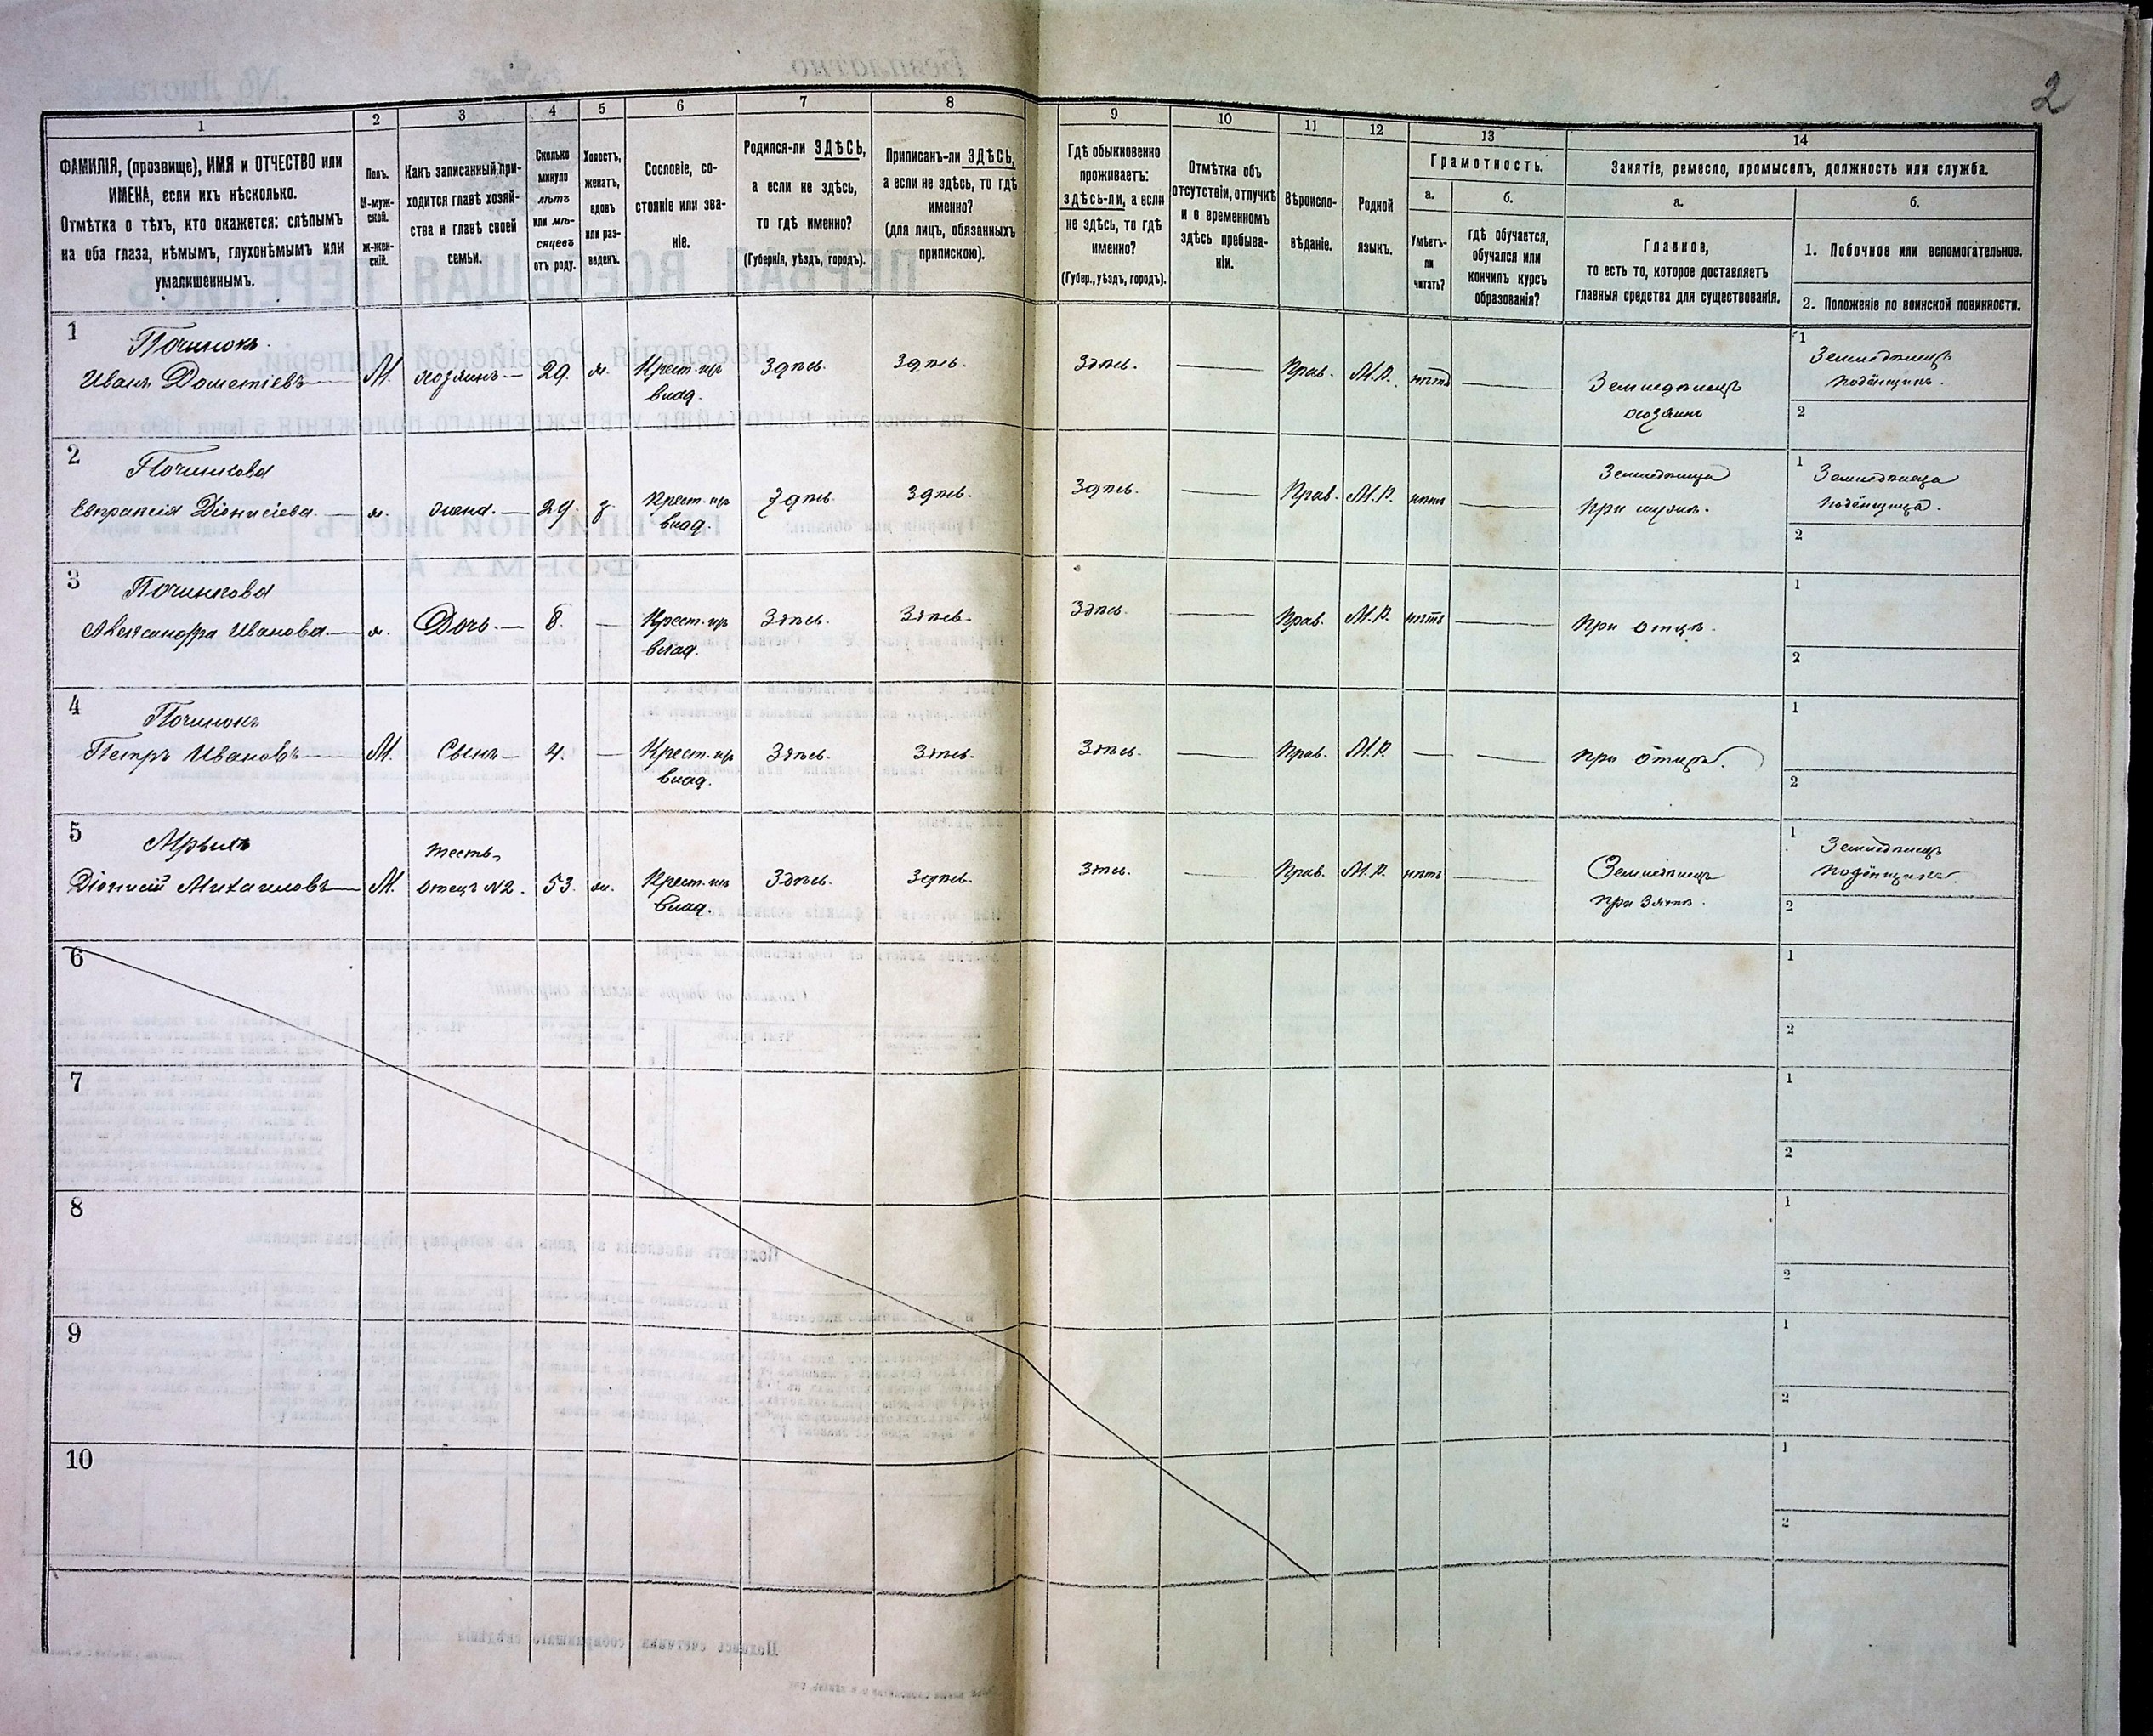 2
1
2
3
4
5
6
7
8
9
10
11
12
13
14
ФАМИЛІЯ, (прозвище), ИМЯ и ОТЧЕСТВО или
ИМЕНА, если ихъ нѣсколько.
Отмѣтка о тѣхъ, кто окажется: слѣпымъ
на оба глаза, нѣмымъ, глухонѣмымъ или
умалишеннымъ.
Полъ.
М-муж-
ской.
Ж-жен-
скій.
Какъ записанный при-
ходится главѣ хозяй-
ства и главѣ своей
семьи.
Сколько
минуло
лѣтъ
или мѣ-
сяцевъ
отъ роду.
Холостъ,
женатъ,
вдовъ
или раз-
веденъ.
Сословіе, со-
стояніе или зва-
ніе.
Родился-ли ЗДѢСЬ,
а если не здѣсь,
то гдѣ именно?
(Губернія, уѣздъ, городъ).
Приписанъ-ли ЗДѢСЬ,
а если не здѣсь, то гдѣ
именно?
(для лицъ, обязанныхъ
припискою).
Гдѣ обыкновенно
проживаетъ:
здѣсь-ли, а если
не здѣсь, то гдѣ
именно?
(Губер., уѣздъ, городъ).
Отмѣтка объ
отсутствіи, отлучкѣ
и о временномъ
здѣсь пребыва-
ніи.
Вѣроиспо-
вѣданіе.
Родной
языкъ.
Грамотность.
а.
Умѣетъ-
ли
читать?
б.
гдѣ обучается,
обучался или
кончилъ курсъ
образованія?
Занятіе, ремесло, промыселъ, должность или служба.
а.
Главное,
то есть то, которое доставляетъ
главныя средства для существованія.
б.
1. Побочное или вспомогательное.
2. Положеніе по воинской повинности.
1
Починокъ.
Иванъ Дометіевъ
М.
хозяинъ
29.
ж.
Крест. изъ
влад.
Здѣсь.
Здѣсь.
Здѣсь.
Прав.
М.Р.
нѣтъ
Земледѣлецъ
хозяинъ
1
Земледѣлецъ
подёнщикъ.
2
2
Починкова
Евпраксія Діонисіева
ж.
жена.
29.
з.
Крест. изъ
влад.
Здѣсь
Здѣсь.
Здѣсь.
Прав.
М.Р.
нѣтъ
Земледѣлица
При мужѣ.
1
Земледѣлица
подёнщица.
2
3
Починкова
Александра Иванова
ж.
Дочь
8.
Крест. изъ
влад.
Здѣсь.
Здѣсь.
Здѣсь.
Прав.
М.Р.
нѣтъ
При отцѣ.
1
2
4
Починокъ
Петръ Ивановъ
М.
Сынъ
4.
Крест. изъ
влад.
Здѣсь.
Здѣсь.
Здѣсь.
Прав.
М.Р.
При отцѣ.
1
2
5
Діонисій Михаиловъ
М.
тесть,
отецъ №2.
53.
ж.
Крест. изъ
влад.
Здѣсь.
Здѣсь.
Здѣсь.
Прав.
М.Р.
нѣтъ
Земледѣлецъ
При Зятѣ.
1
Земледѣлецъ
подёнщикъ.
2
6
1
2
7
1
2
8
1
2
9
1
2
10
1
2